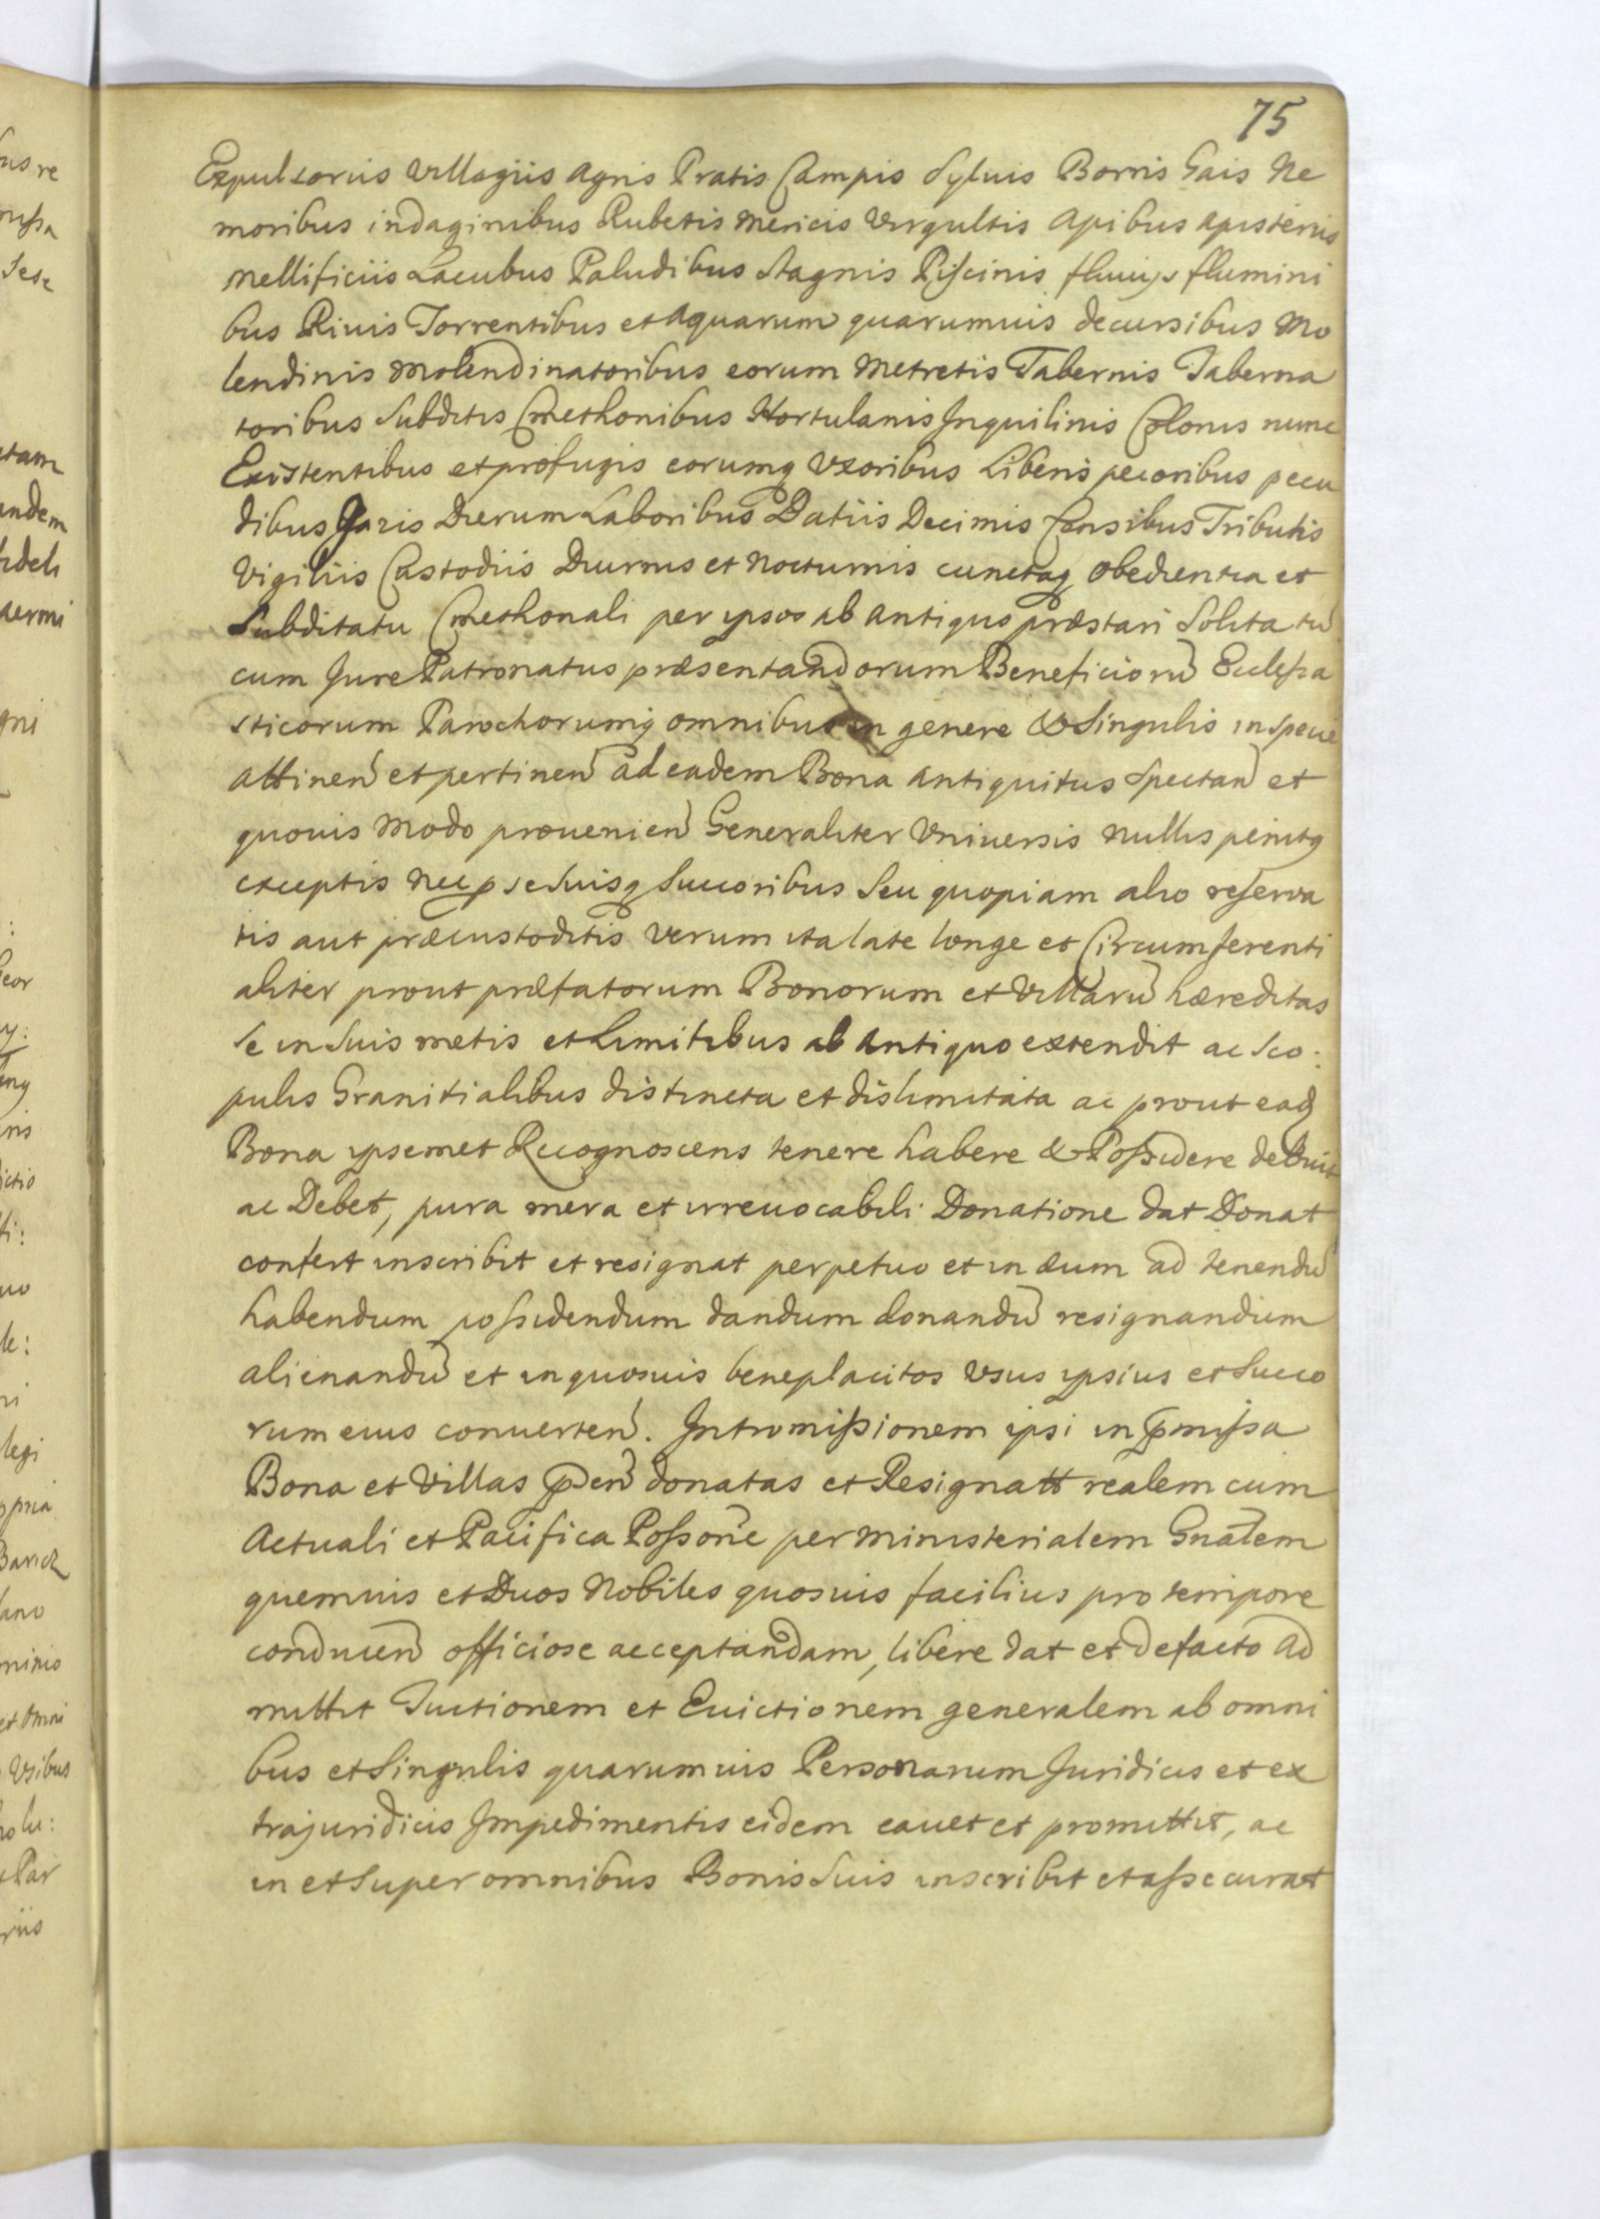 75
Expulsoriis Villagiis Agris Pratis Campis Syluis Borris Gais Ne
moribus indaginibus Rubetis Mericis Virgultis Apibus apisteriis
Mellificiis Lacubus Paludibus Stagnis Piscinis fluuijs flumini
bus Riuis Torrentibus et Aquarum quarumuis decursibus Mo
lendinis Molendinatoribus eorum Metretis Tabernis Taberna
toribus Subditis Cmethonibus Hortulanis Inquilinis Colonis nunc
Existentibus et profugis eorumq Vxoribus Liberis pecoribus pecu
dibus Gazis Dierum Laboribus Datiis Decimis Censibus Tributis
Vigiliis Custodiis Diurnis et Nocturnis cunctaq Obedientia et
Subditatu Cmethonali per ipsos ab antiquo præstari Solita tu
cum Jure Patronatus præsentandorum Beneficioru Eclesia
sticorum Parochorumq omnibus in genere & Singulis in specie
attinen et pertinen ad eadem Bona antiquitus Spectan et
quouis Modo prouenien Generaliter Vniuersis nullis penitq
exceptis nec p se Suisq Succoribus Seu quopiam alio reserva
tis aut præcustoditis Verum ita late longe et Circumferenti
aliter prout præfatorum Bonorum et Villaru hæreditas
Se in Suis metis et Limitibus ab Antiquo extendit ac Sco:
pulis Granitialibus distincta et dislimitata ac prout ead
Bona ipsemet Recognoscens tenere habere & Possidere debuit
ac Debet, pura mera et irreuocabili Donatione dat Donat
confert inscribit et resignat perpetuo et in æuum ad tenendu
habendum possidendum dandum donandu resignandum
alienandu et in quosuis beneplacitos Vsus ipsius et Succo
rum eius conuerten. Intromissionem ipsi in pmissa
Bona et Villas pden donatas et Resignatt realem cum
Actuali et Pacifica Possone per Ministerialem Gnalem
quemuis et Duos Nobiles quosuis facilius pro tempore
conducen officiose acceptandam, libere dat et de facto ad
mittit Tuitionem et Euictionem generalem ab omni
bus et Singulis quarumuis Personarum Juridicis et ex
trajuridicis Impedimentis eidem cauet et promittit, ac
in et Super omnibus Bonis Suis inscribit et assecurat